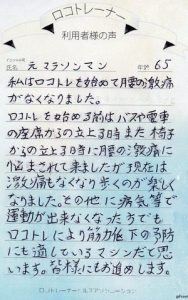 ロコトレーナー
利用者様の声
氏名 元マラソンマン 年齢 65
私はロコトレを始めて腰の激痛
がなくなりました。
ロコトレを始める前はバスや電車
の座席からの立上る時また椅子
からの立上る時に腰の激痛に
悩まされて来ましたが現在は
激痛もなくなり歩くのが楽しく
なりました。その他に病気等で
運動が出来なくなった方でも
ロコトレにより筋力低下の予防
にも適しているマシンだと思
います。皆様にもお進めします。